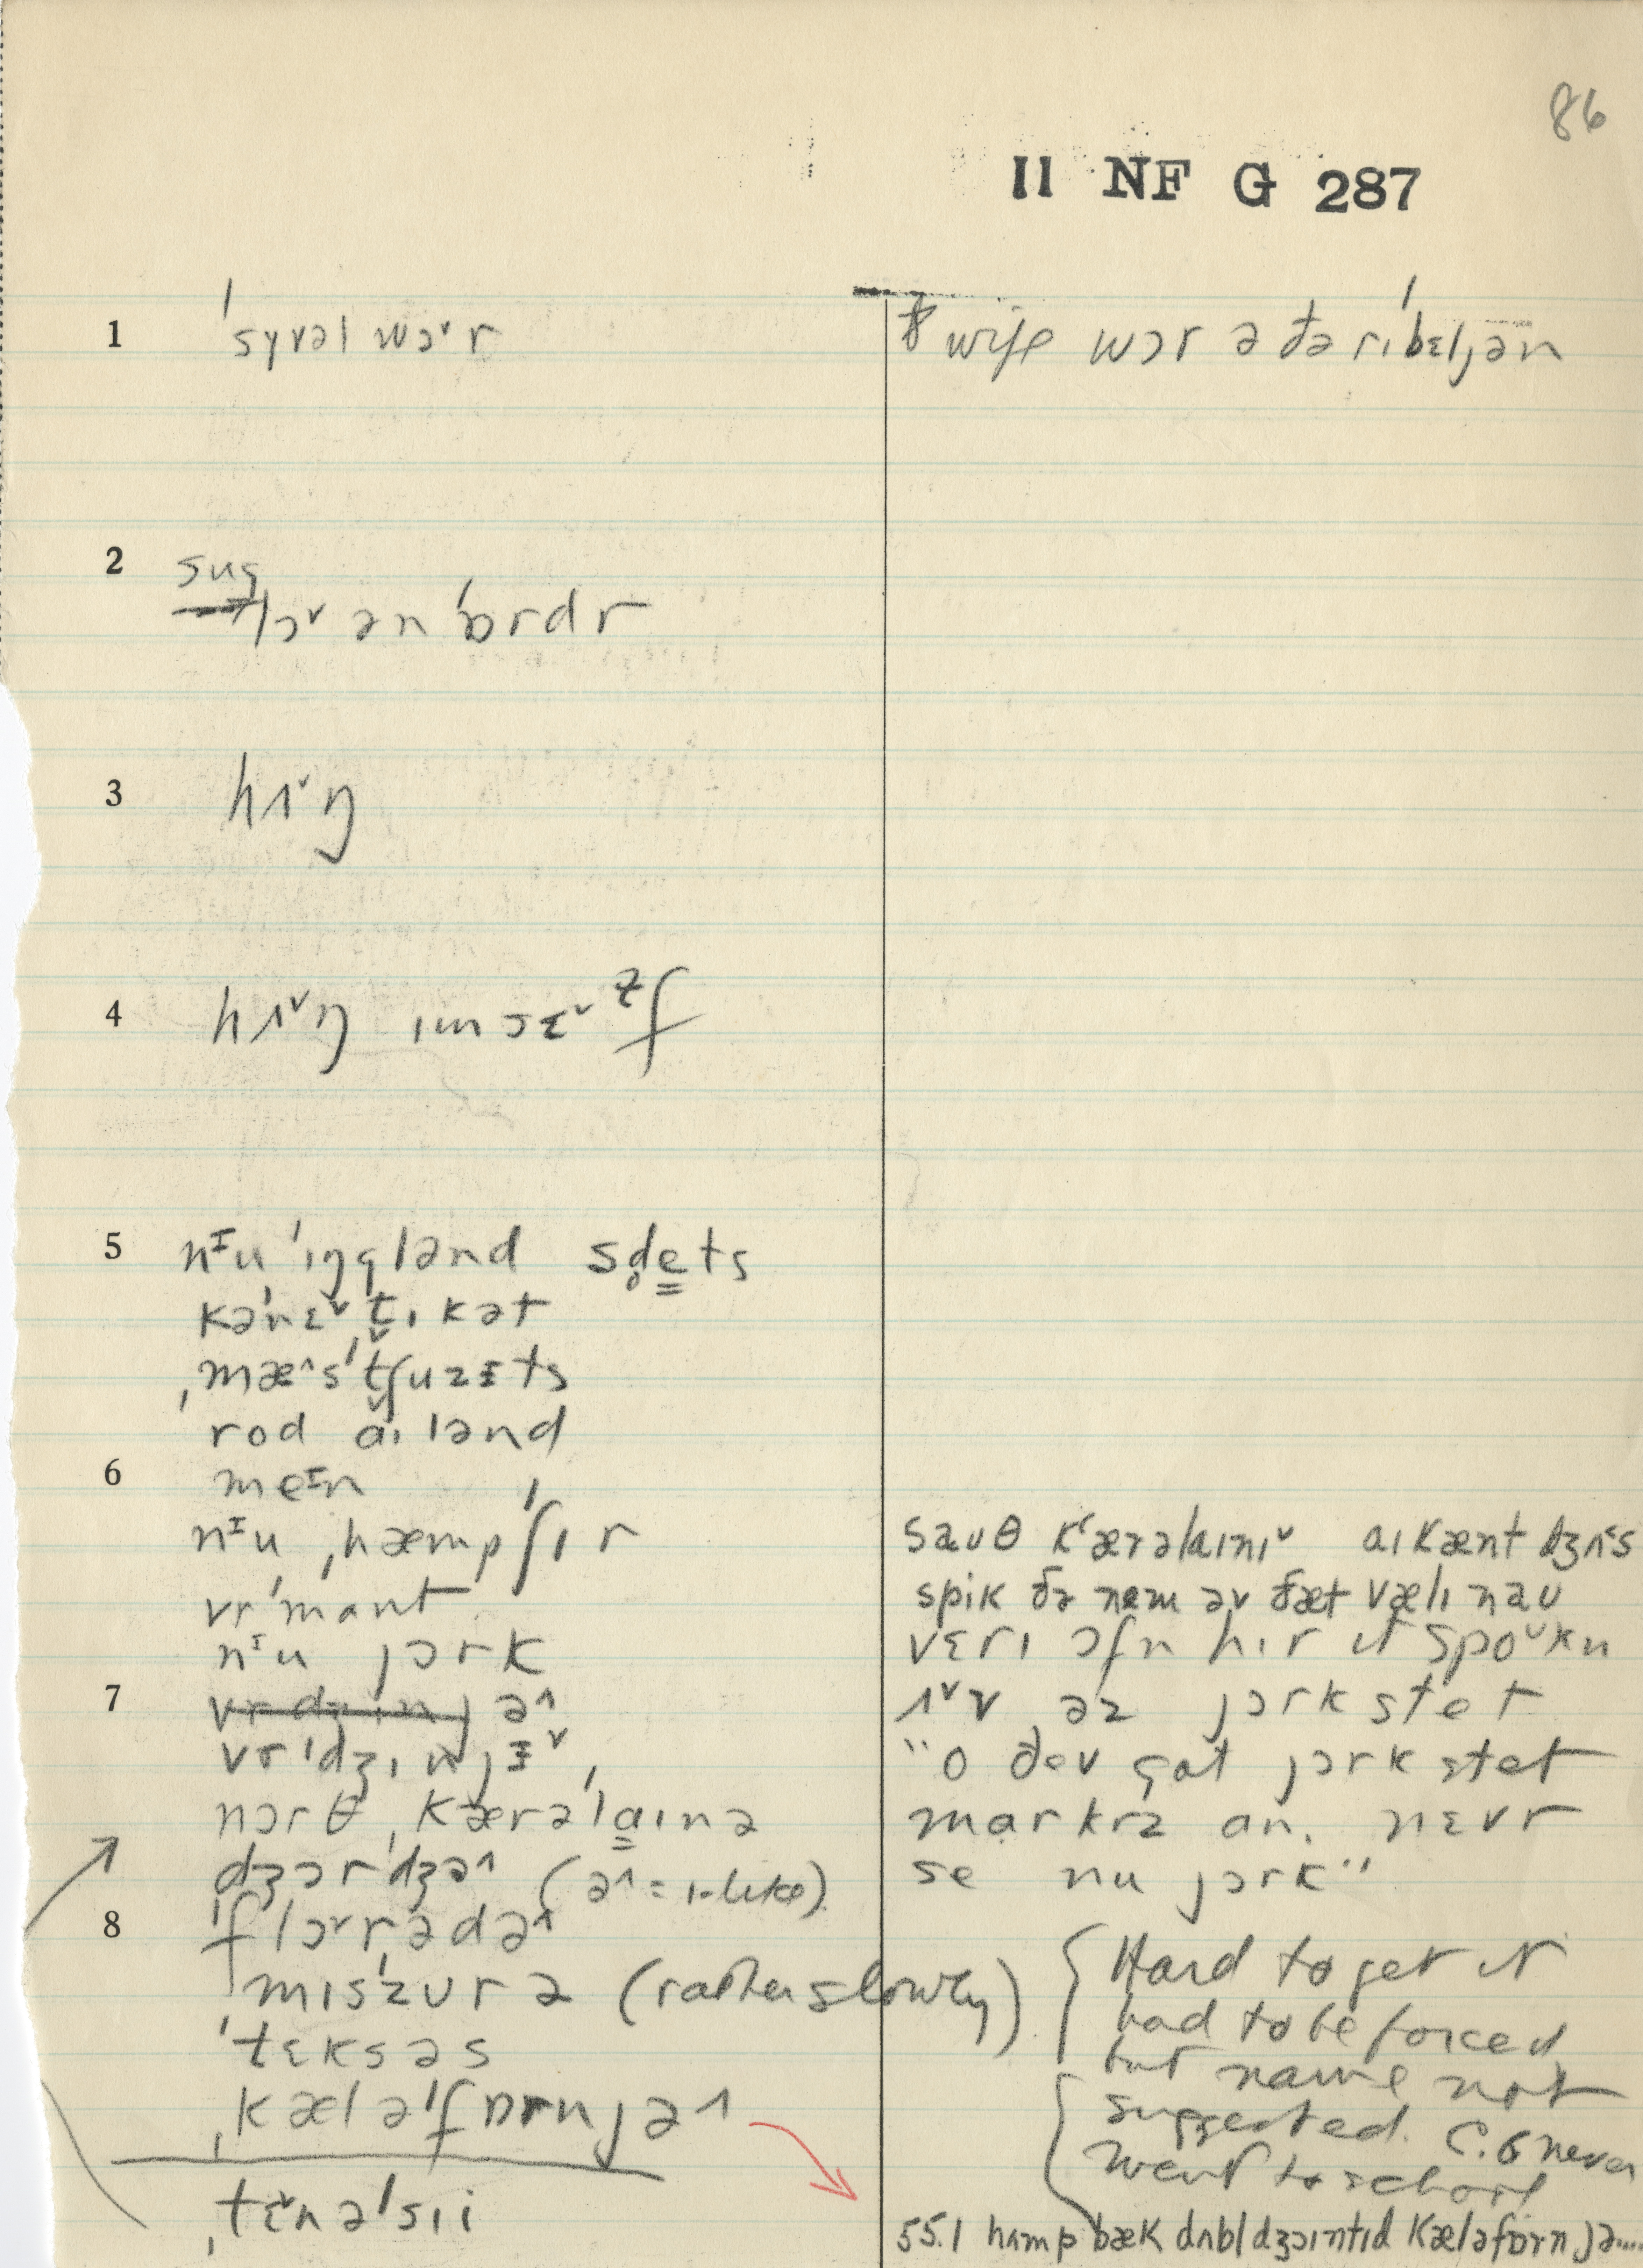 86
II NF G 287
1 ˈsyvəl wɔˇr
wife wɔr ə ðə rɪˈbɛljən
2 sug
lɔˇ ən ˈɒrdr
3 hʌˇŋ
4 hʌˇŋ ɪmsɛˇɫf
5 nᶦu ˈɪŋglənd sd̥e̳ts
kəˈnɛˇt̬ɪkət
ˌmæ^sˈt̬ʃuzɪts
rod aɪlənd
6 meᶦn
nᶦu ˌhæmpˈʃɪr
vrˈmɑnt
nᶦu jɔrk
7 vrdʒɪnjə^
vrˈdʒɪnjɪˇ
nɔrθ ˌkærəˈla̳ɪnə
dʒɔrdʒə^ (ə^ = ɪ-like)
8 ˈflɔˇrˌədə^
mɪsˈzurə (rather slowly)
ˈtɛksəs
ˌkæləˈfɒrnjə^
ˌtɛˇnəˈsɪi
saʊθ kʻærəlaɪnɪˇ aɪ kænt dʒʌˇs
spik ðə nem əv ðæt væli naʊ
vɛrɪ ɔfn hɪr ɪt spoᵘkn
ʌˇv əz jɔrk stet
"o ðev gɑt jɔrk stet
mɑrkrz ɑn. nɛvr
se nu jɔrk"
Hard to get it
had to be forced
but name not
suggested. C.G never
went to school
55.1 hʌmpbæk dʌbl dʒɔɪntɪd kæləfɔrnjə....